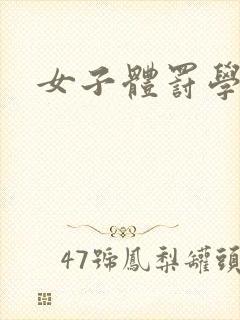 女子體罰學
47號鳳梨罐頭